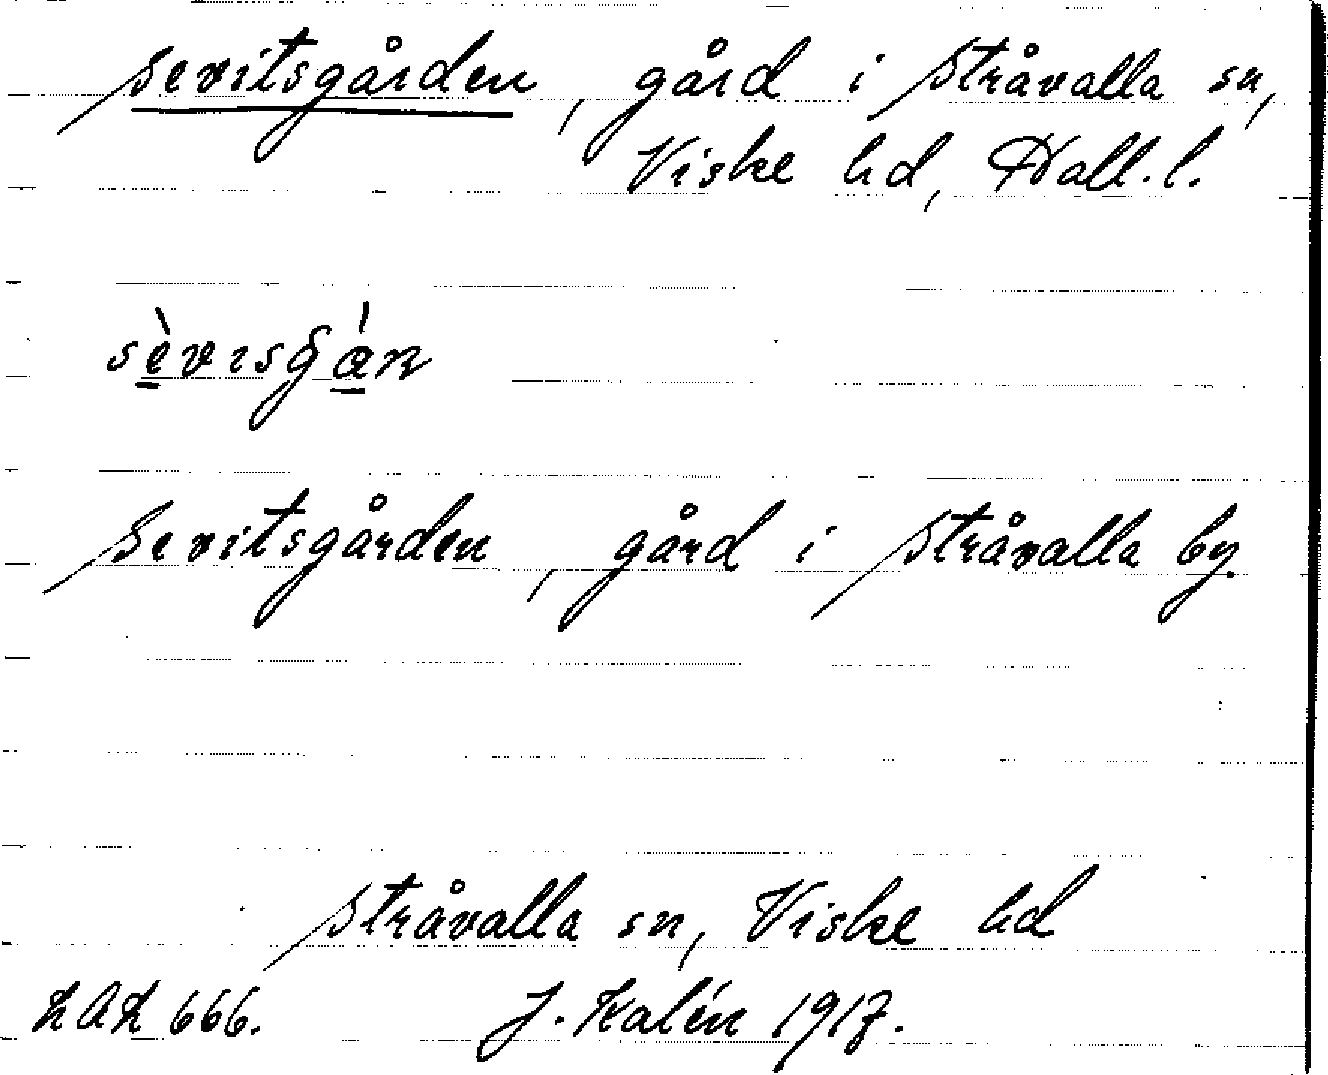 Sevitsgården, gård i Stråvalla sn,
Viske hd, Hall.l.
sèvisgán
Sevitsgården, gård i Stråvalla by.
Stråvalla sn, Viske hd
LAL 666. J. Kalén 1917.